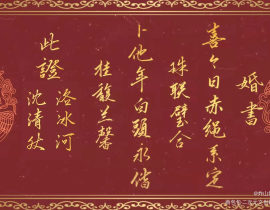 婚书
喜今日赤绳系定
珠联璧合
卜他年白頭永偕
桂馥兰馨
此證
洛冰河
沈清秋